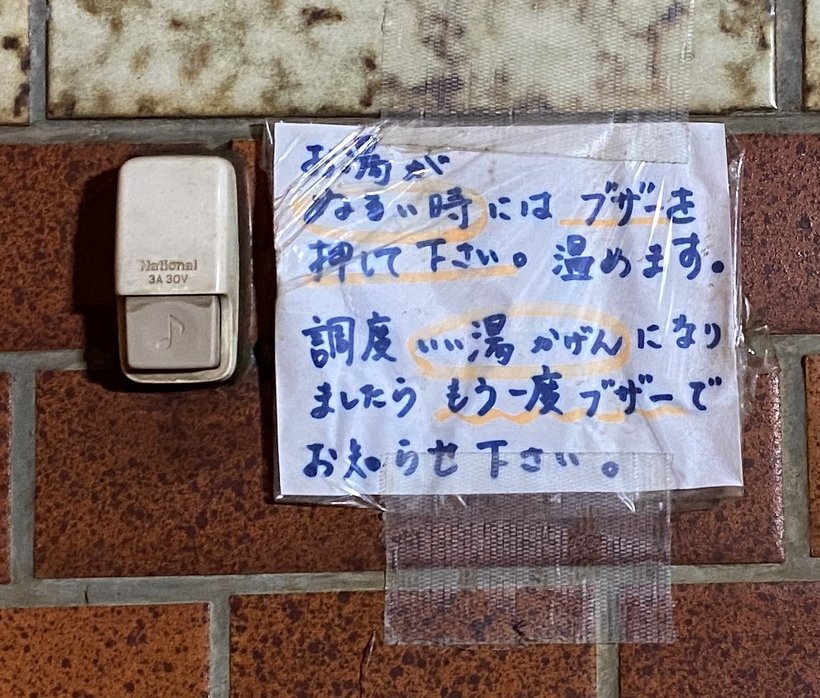 National
3A 30V
お湯が
ぬるい時には ブザーを
押して下さい。温めます。
調度 いい湯かげんになり
ましたら もう一度ブザーで
お知らせ下さい。